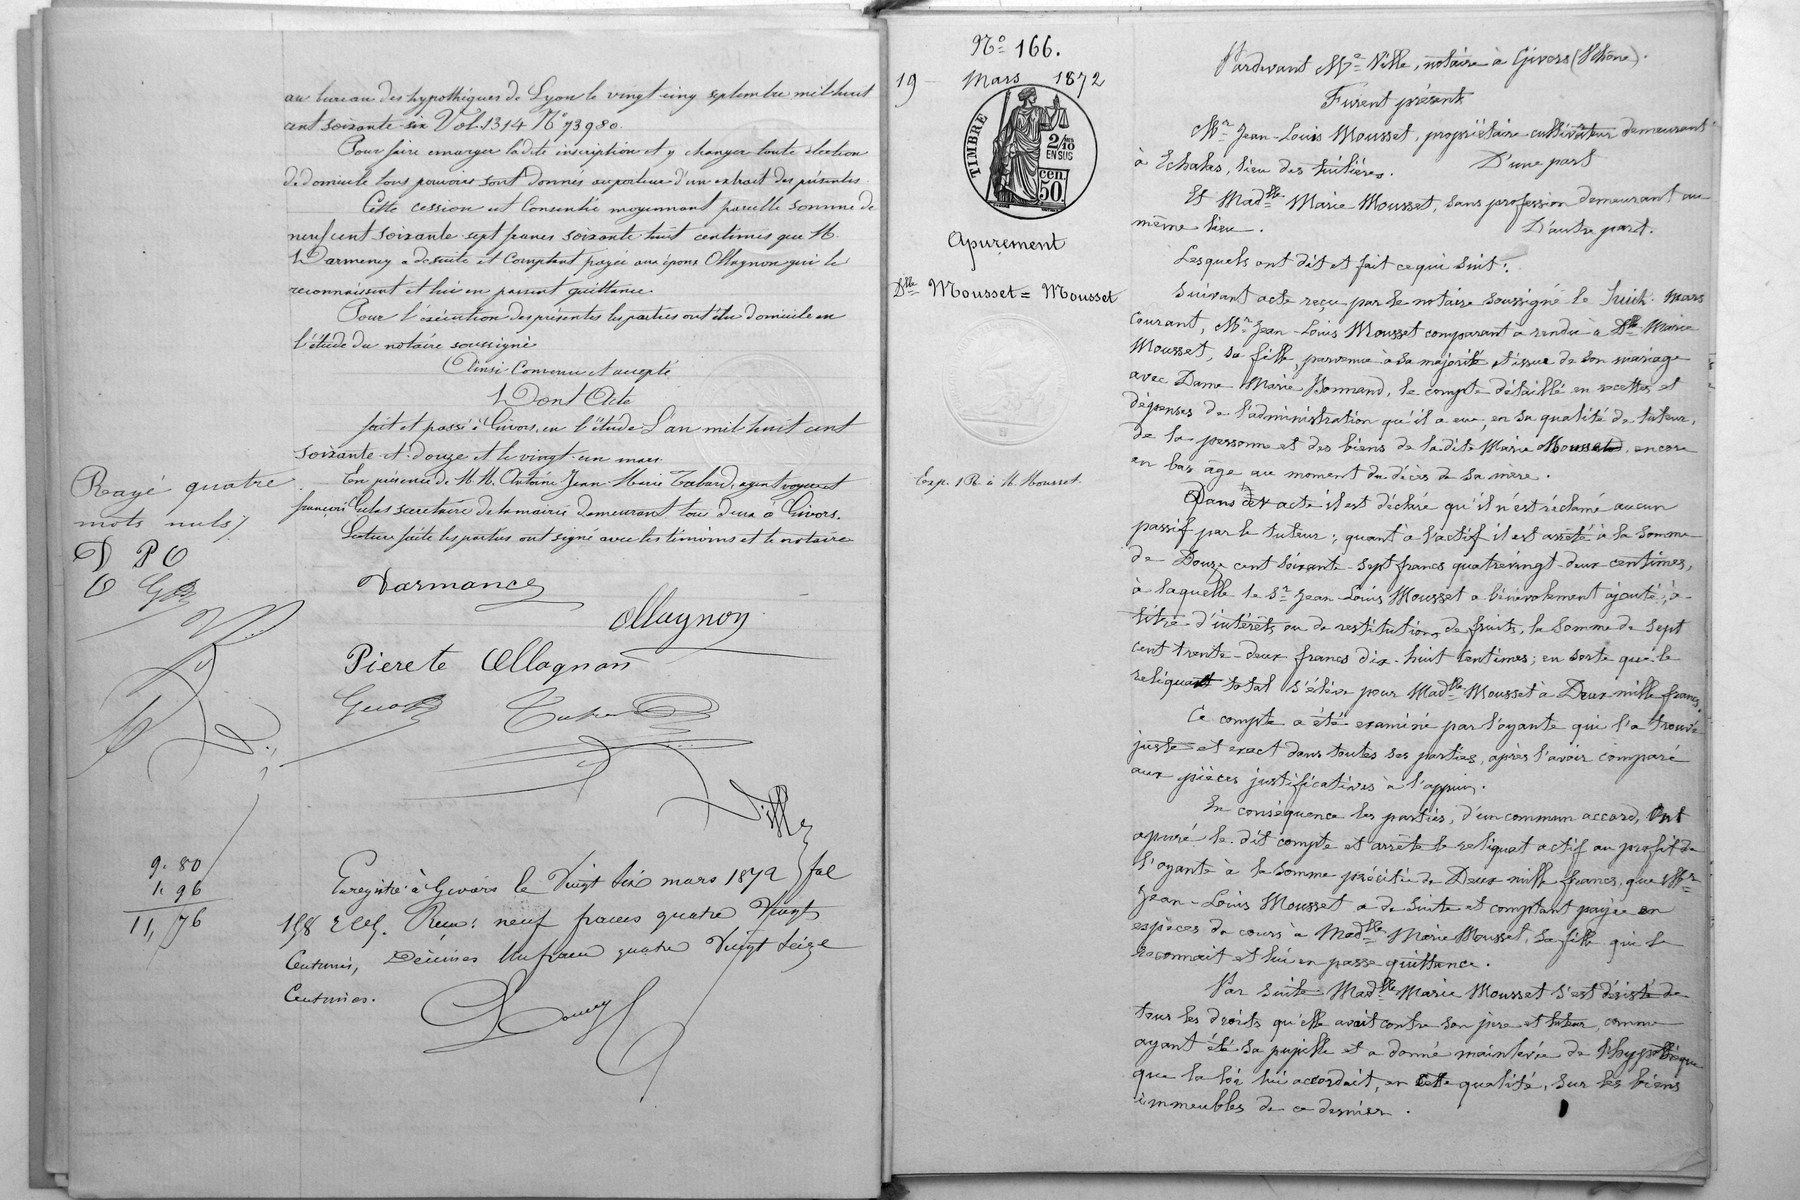 au bureau des hypothèques de Lyon le vingt cinq septembre mil huit
cent soixante-six Vol. 1314 N° 73980.
Pour faire émarger ladite inscription et y changer toute élection
de domicile tous pouvoirs sont donnés au porteur d'un extrait des présentes.
Cette cession est consentie moyennant pareille somme de
neuf cent soixante-sept francs soixante-huit centimes que M.
Darmency a de suite et comptant payée aux époux Ollagnon qui le
reconnaissent et lui en passent quittance.
Pour l'exécution des présentes les parties ont élu domicile en
l'étude du notaire soussigné
Ainsi Convenu et accepté
Dont Acte
fait et passé à Givors, en l'étude L'an mil huit cent
soixante-et-douze et le vingt-un mars.
En présence de MM. Antoine Jean Marie Tabard, agent voyer et
françois secrétaire de la mairie demeurant tou deux à Givors.
Lecture faite les parties ont signé avec les témoins et le notaire
Rayé quatre
mots nuls
D PO
O
Darmancey
Ollagnon
Pierete Ollagnon
Ville
9. 80
1. 96
11, 76
Enregistré à Givors le Vingt Six mars 1872 fol
158 Reçu: neuf francs quatre Vingt
Centimes, Décimes Un franc quatre Vingt Seize
Centimes.
N° 166.
19 Mars 1872
TIMBRE
2/10
EN SUS
50 cen.
Apurement
Dlle Mousset = Mousset
Exp. 1 R. à M. Mousset.
Pardevant Me Ville, notaire à Givors (Rhône).
Furent présents
Mr Jean-Louis Mousset, propriétaire cultivateur demeurant
à Echalas, lieu des tuilières. D'une part
Et Madlle Marie Mousset, sans profession demeurant au
même lieu. D'autre part.
Lesquels ont dit et fait ce qui suit:
Suivant acte reçu par le notaire soussigné le huit mars
courant, Mr Jean-Louis Mousset comparant a rendu à Dlle Marie
Mousset, sa fille, parvenue à sa majorité et issue de son mariage
avec Dame Marie Bonnand, le compte détaillé en recettes et
dépenses de l'administration qu'il a eue, en sa qualité de tuteur,
de la personne et des biens de ladite Marie Mousset, encore
en bas âge au moment du décès de sa mère.
Dans cet acte il est déclaré qu'il n'est réclamé aucun
passif par le tuteur; quant à l'actif il est arrêté à la somme
de Douze cent soixante-sept francs quatrevingt-deux centimes,
à laquelle le Sr Jean-Louis Mousset a bénévolement ajouté, à
titre d'intérêts ou de restitution de fruits, la somme de sept
cent trente-deux francs dix-huit centimes; en sorte que le
reliquat total s'élève pour Madlle Mousset à Deux mille francs.
Ce compte a été examiné par l'oyante qui l'a trouvé
juste et exact dans toutes ses parties, après l'avoir comparé
aux pièces justificatives à l'appui.
En conséquence les parties, d'un commun accord, ont
apuré le dit compte et arrêté le reliquat actif au profit de
l'oyante à la somme précitée de Deux mille francs, que Mr
Jean-Louis Mousset a de suite et comptant payée en
espèces de cours à Madlle Marie Mousset, sa fille qui le
reconnait et lui en passe quittance.
Par suite Madlle Marie Mousset s'est désisté de
tous les droits qu'elle avait contre son père et tuteur, comme
ayant été sa pupille et a donné mainlevée de l'hypothèque
que la loi lui accordait, en cette qualité, sur les biens
immeubles de ce dernier.